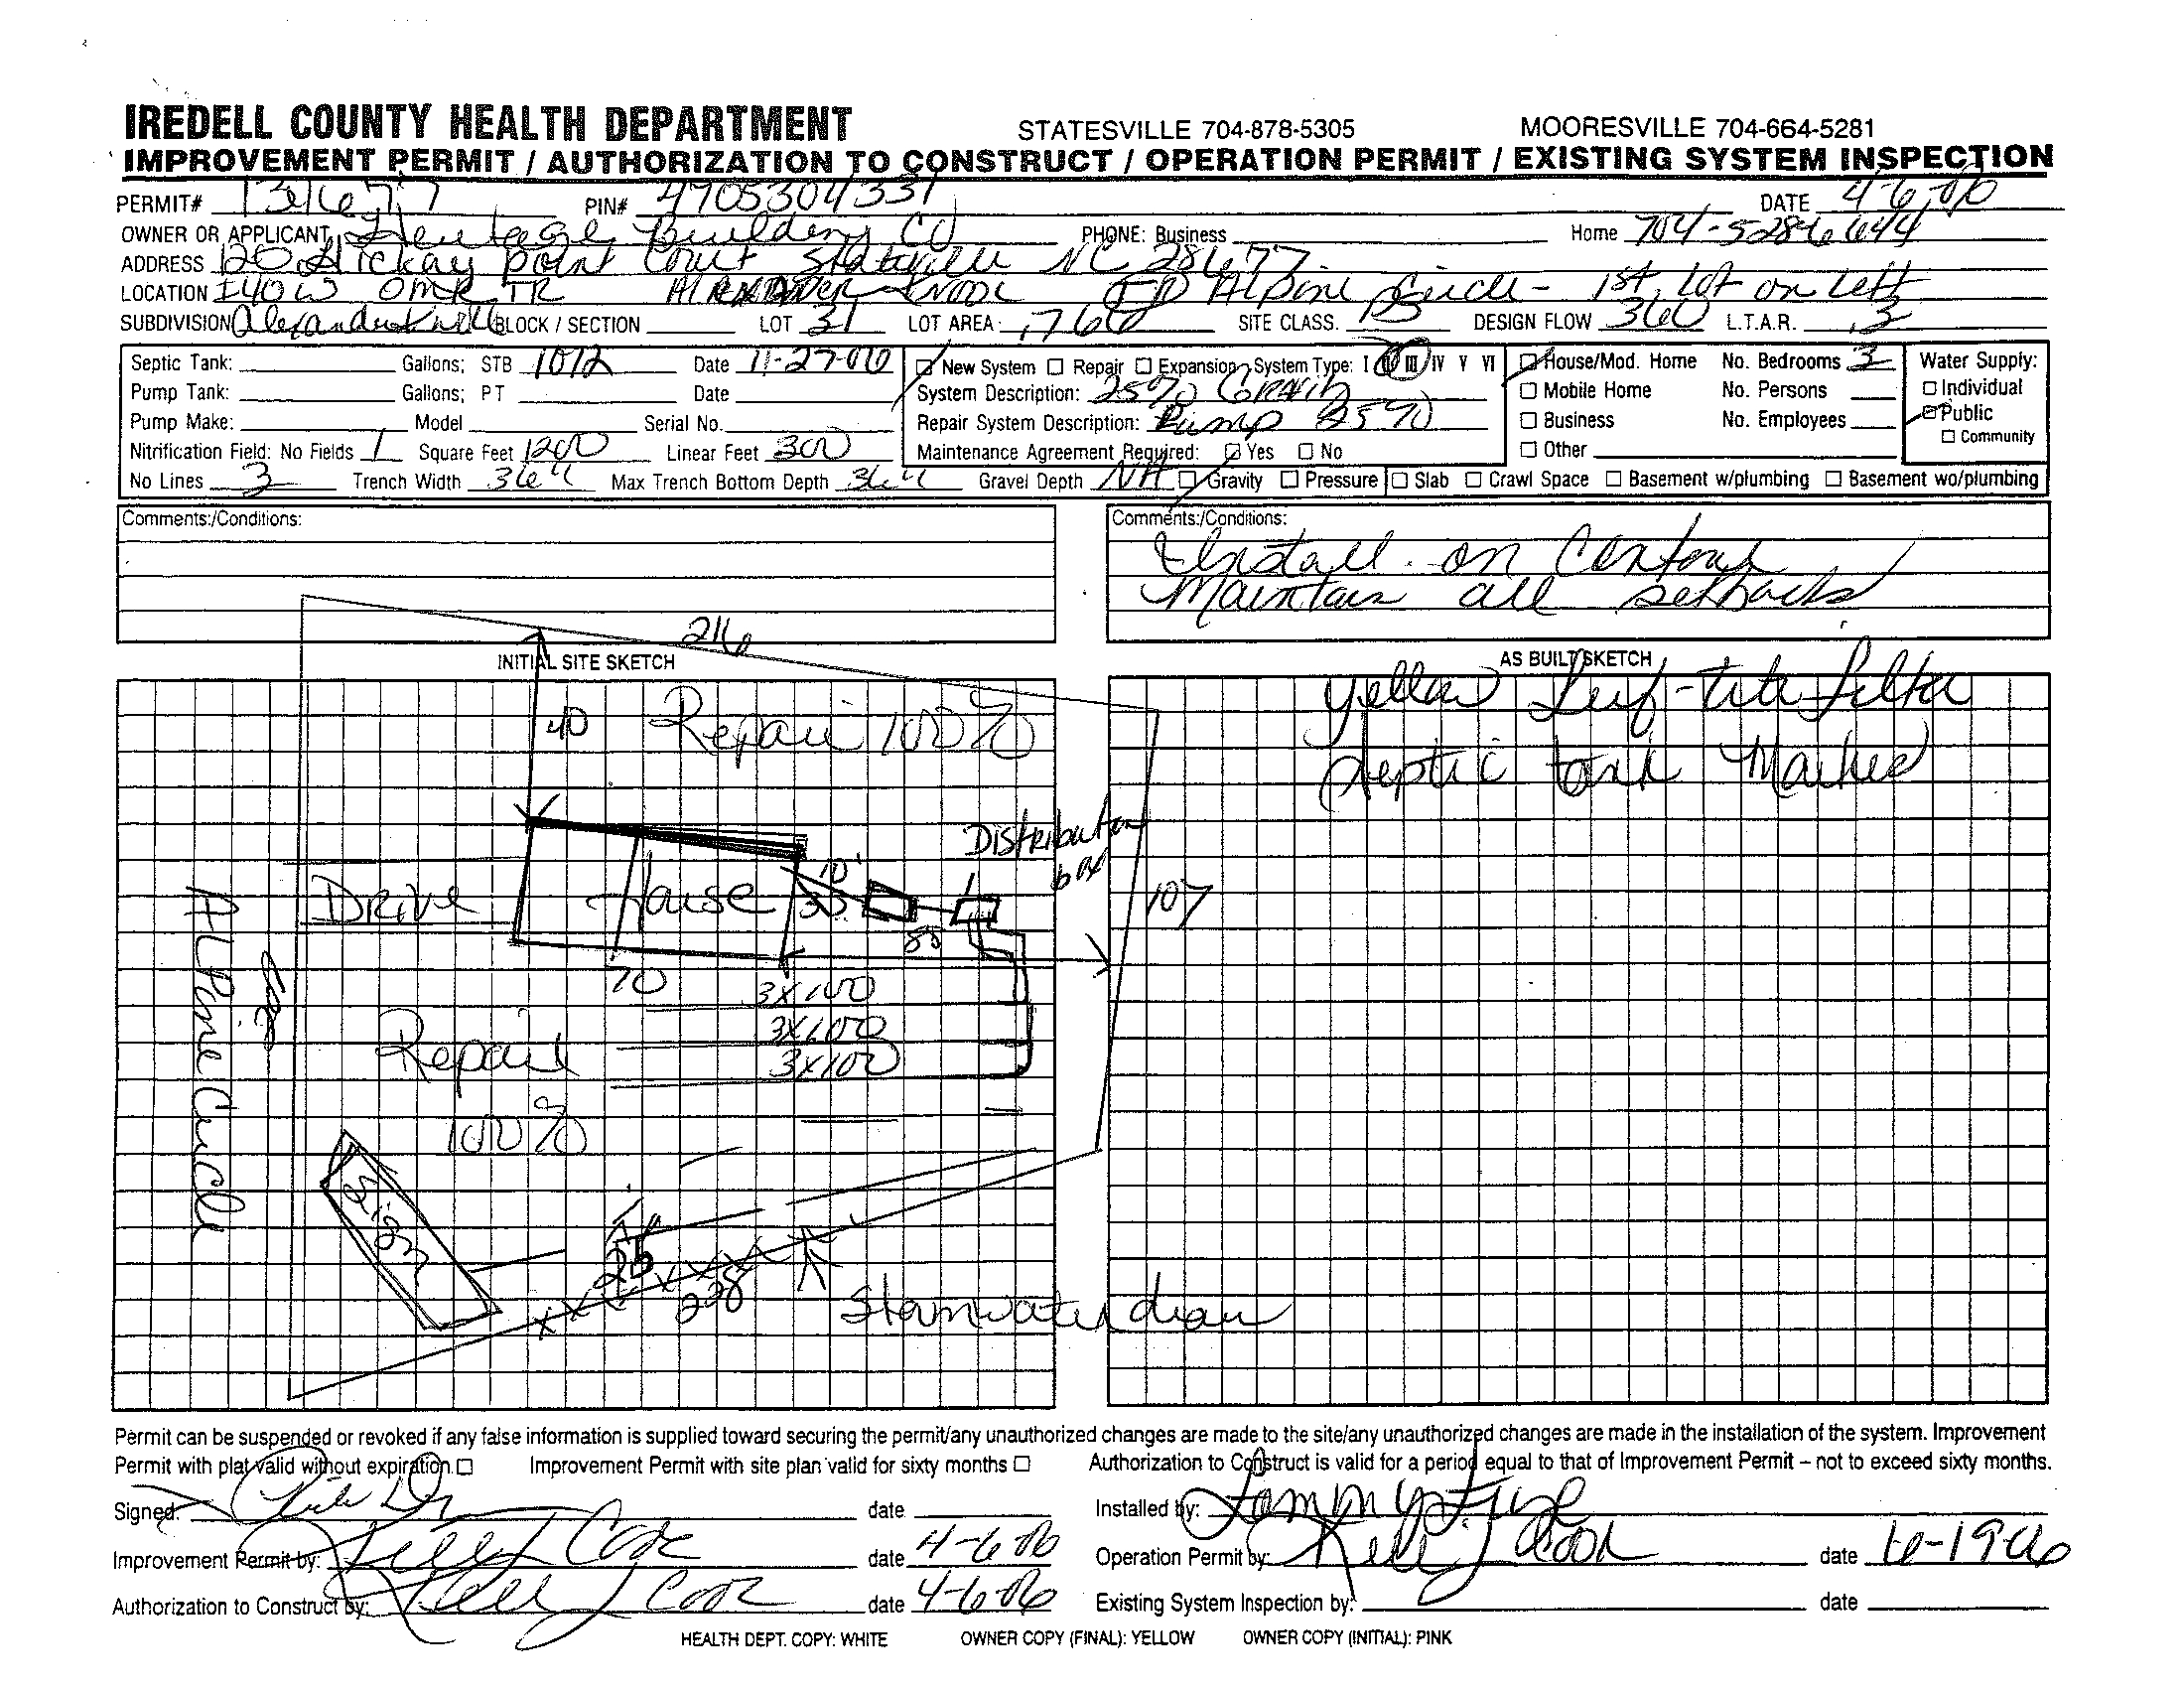 IREDELL COUNTY HEALTH DEPARTMENT STATESVILLE 704-878-5305 MOORESVILLE 704-664-5281
IMPROVEMENT PERMIT / AUTHORIZATION TO CONSTRUCT / OPERATION PERMIT / EXISTING SYSTEM INSPECTION
PERMIT# PIN# 4705304331 DATE 4-6-06
OWNER OR APPLICANT Heritage Building CO PHONE: Business Home 704-528-6644
ADDRESS 120 Hickay point Court Statesville NC 28677
LOCATION I40W OMR TR Alexander Knoll TR Alpine Circle - 1st lot on left
SUBDIVISION Alexander Knoll BLOCK / SECTION LOT 31 LOT AREA: .766 SITE CLASS. PS DESIGN FLOW 360 L.T.A.R. .3
Septic Tank: Gallons; STB 1012 Date 11-27-06 New System Repair Expansion System Type: I II III IV V VI House/Mod. Home No. Bedrooms 3 Water Supply:
Pump Tank: Gallons; PT Date System Description: 25% Gravity Mobile Home No. Persons Individual
Pump Make: Model Serial No. Repair System Description: Pump 25% Business No. Employees Public
Nitrification Field: No Fields 1 Square Feet 1200 Linear Feet 300 Maintenance Agreement Required: Yes No Other Community
No Lines 3 Trench Width 36" Max Trench Bottom Depth 36" Gravel Depth NA Gravity Pressure Slab Crawl Space Basement w/plumbing Basement wo/plumbing
Comments:/Conditions: Comments:/Conditions:
Install on Contour
Maintain all setbacks
216
INITIAL SITE SKETCH AS BUILT SKETCH
Yellow Filter
40 Repair 100%
Septic tank Marked
Distribution
box
10'
Drive House 107
55
70
3X100
3X100
3X100
Repair
100%
ALPine Circle
Sign
25
228
Stormwater drain
Permit can be suspended or revoked if any false information is supplied toward securing the permit/any unauthorized changes are made to the site/any unauthorized changes are made in the installation of the system. Improvement
Permit with plat valid without expiration. Improvement Permit with site plan valid for sixty months Authorization to Construct is valid for a period equal to that of Improvement Permit – not to exceed sixty months.
Signed: date Installed by:
Improvement Permit by: Kelly Cook date 4-6-06 Operation Permit by: Kelly Cook date
Authorization to Construct by: Kelly Cook date 4-6-06 Existing System Inspection by: date
HEALTH DEPT. COPY: WHITE OWNER COPY (FINAL): YELLOW OWNER COPY (INITIAL): PINK